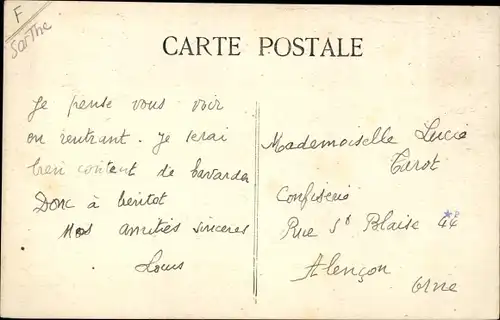 F
Sarthe
CARTE POSTALE
Je pense vous voir
en rentrant. Je serai
bien content de bavarder
Donc à bientot
Mes amitiés sinceres
Louis
Mademoiselle Lucie
Tarot
Confiserie
Rue St Blaise 44
Alençon
Orne